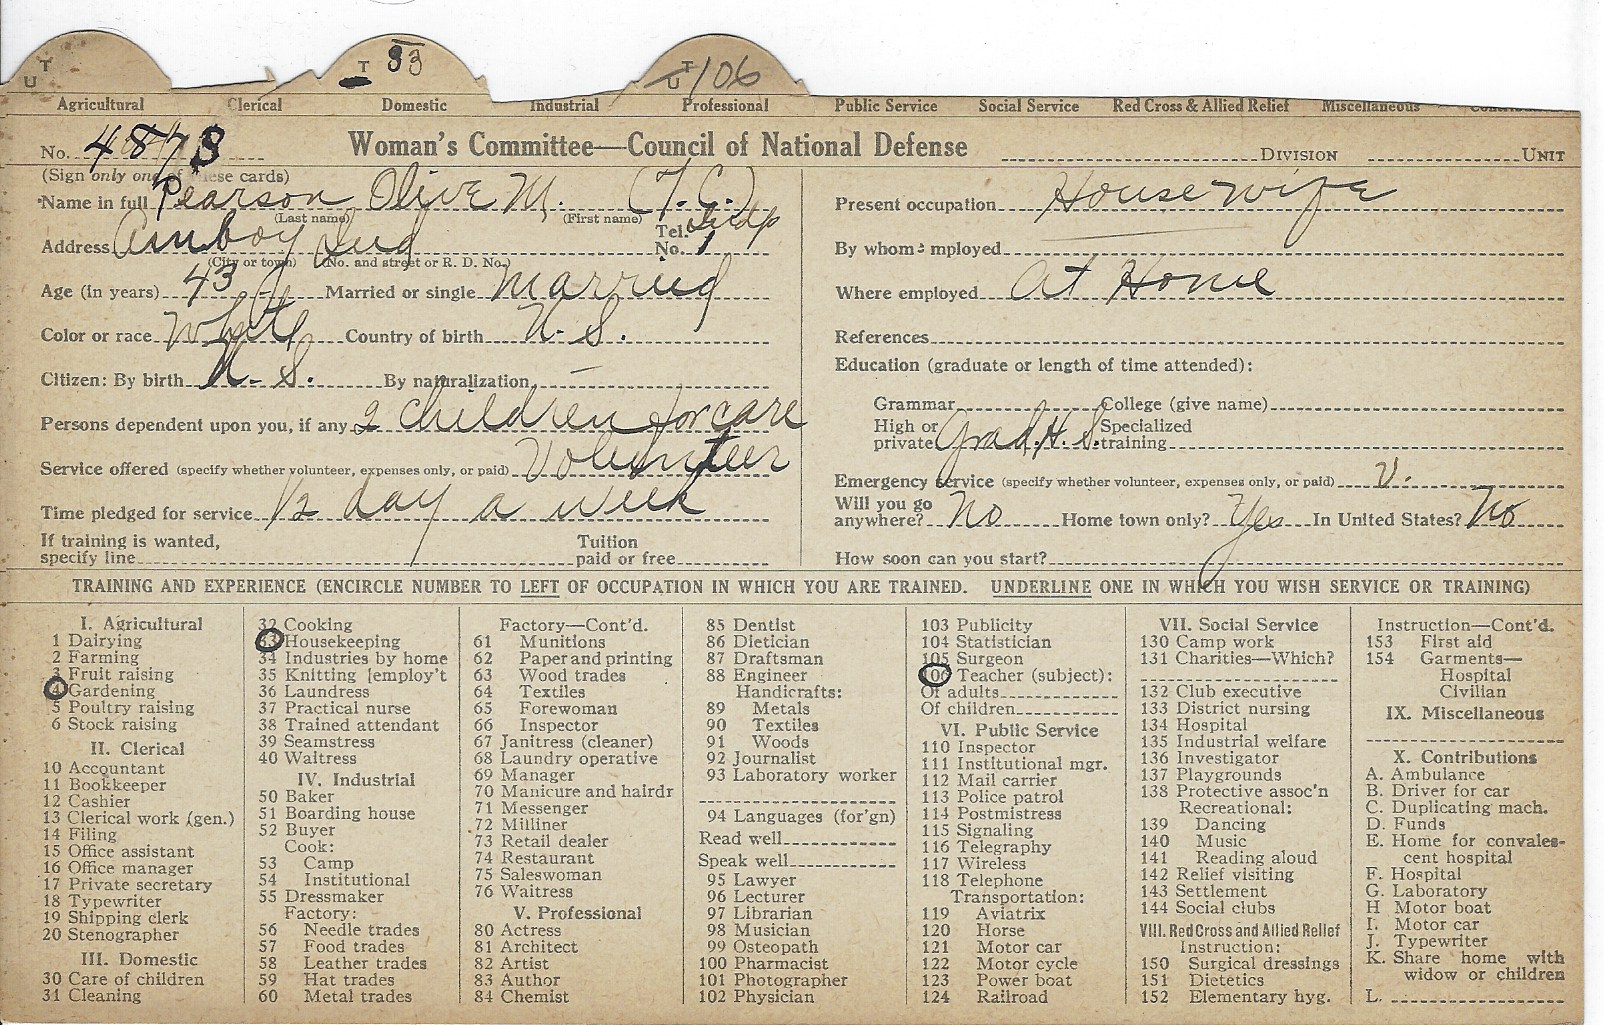 T U T 33 T U 106
Agricultural Clerical Domestic Industrial Professional Public Service Social Service Red Cross & Allied Relief Miscellaneous
No. 4878 Woman's Committee—Council of National Defense DIVISION UNIT
(Sign only one of these cards)
Name in full Pearson Olive M. (T. C.)
(Last name) (First name)
Address Amboy Ind Tel. No. 1
(City or town) (No. and street or R. D. No.)
Age (in years) 43 Married or single Married
Color or race White Country of birth U. S.
Citizen: By birth U. S. By naturalization —
Persons dependent upon you, if any 2 children for care
Service offered (specify whether volunteer, expenses only, or paid) Volunteer
Time pledged for service 1/2 day a week
If training is wanted, specify line Tuition paid or free
Present occupation Housewife
By whom employed
Where employed At Home
References
Education (graduate or length of time attended):
Grammar College (give name)
High or private Grad. H. S. Specialized training
Emergency service (specify whether volunteer, expenses only, or paid) V.
Will you go anywhere? No Home town only? Yes In United States? No
How soon can you start?
TRAINING AND EXPERIENCE (ENCIRCLE NUMBER TO LEFT OF OCCUPATION IN WHICH YOU ARE TRAINED. UNDERLINE ONE IN WHICH YOU WISH SERVICE OR TRAINING)
I. Agricultural
1 Dairying
2 Farming
3 Fruit raising
4 Gardening
5 Poultry raising
6 Stock raising
II. Clerical
10 Accountant
11 Bookkeeper
12 Cashier
13 Clerical work (gen.)
14 Filing
15 Office assistant
16 Office manager
17 Private secretary
18 Typewriter
19 Shipping clerk
20 Stenographer
III. Domestic
30 Care of children
31 Cleaning
32 Cooking
33 Housekeeping
34 Industries by home
35 Knitting [employ't
36 Laundress
37 Practical nurse
38 Trained attendant
39 Seamstress
40 Waitress
IV. Industrial
50 Baker
51 Boarding house
52 Buyer
Cook:
53 Camp
54 Institutional
55 Dressmaker
Factory:
56 Needle trades
57 Food trades
58 Leather trades
59 Hat trades
60 Metal trades
Factory—Cont'd.
61 Munitions
62 Paper and printing
63 Wood trades
64 Textiles
65 Forewoman
66 Inspector
67 Janitress (cleaner)
68 Laundry operative
69 Manager
70 Manicure and hairdr
71 Messenger
72 Milliner
73 Retail dealer
74 Restaurant
75 Saleswoman
76 Waitress
V. Professional
80 Actress
81 Architect
82 Artist
83 Author
84 Chemist
85 Dentist
86 Dietician
87 Draftsman
88 Engineer
Handicrafts:
89 Metals
90 Textiles
91 Woods
92 Journalist
93 Laboratory worker
94 Languages (for'gn)
Read well
Speak well
95 Lawyer
96 Lecturer
97 Librarian
98 Musician
99 Osteopath
100 Pharmacist
101 Photographer
102 Physician
103 Publicity
104 Statistician
105 Surgeon
106 Teacher (subject):
Of adults
Of children
VI. Public Service
110 Inspector
111 Institutional mgr.
112 Mail carrier
113 Police patrol
114 Postmistress
115 Signaling
116 Telegraphy
117 Wireless
118 Telephone
Transportation:
119 Aviatrix
120 Horse
121 Motor car
122 Motor cycle
123 Power boat
124 Railroad
VII. Social Service
130 Camp work
131 Charities—Which?
132 Club executive
133 District nursing
134 Hospital
135 Industrial welfare
136 Investigator
137 Playgrounds
138 Protective assoc'n
Recreational:
139 Dancing
140 Music
141 Reading aloud
142 Relief visiting
143 Settlement
144 Social clubs
VIII. Red Cross and Allied Relief
Instruction:
150 Surgical dressings
151 Dietetics
152 Elementary hyg.
Instruction—Cont'd.
153 First aid
154 Garments—
Hospital
Civilian
IX. Miscellaneous
X. Contributions
A. Ambulance
B. Driver for car
C. Duplicating mach.
D. Funds
E. Home for convales-
cent hospital
F. Hospital
G. Laboratory
H Motor boat
I. Motor car
J. Typewriter
K. Share home with
widow or children
L.